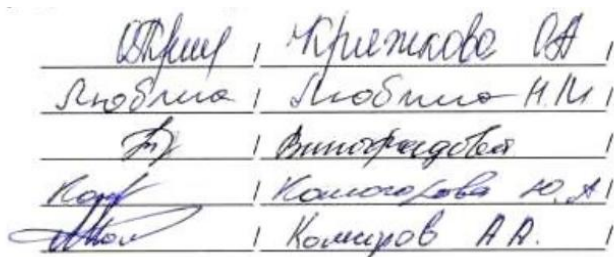 / Кряжкова ОА /
Люблина / Люблина Н.М /
/ Виноградова /
/ Комогорова Ю.А /
/ Комиров А А. /